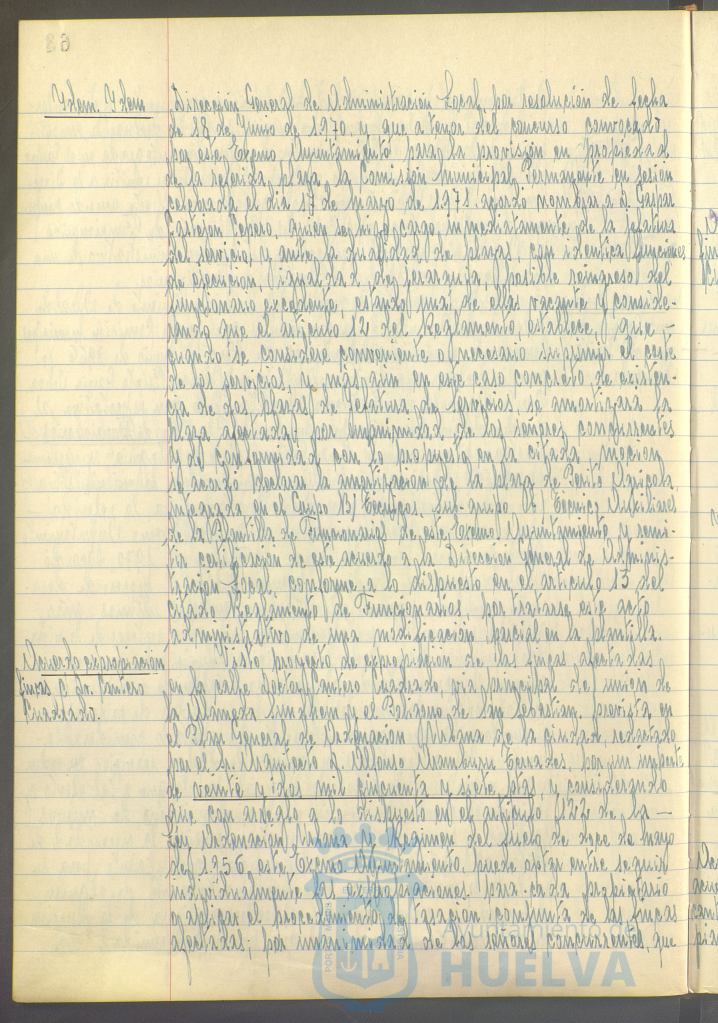 63
Idem. Idem
Dirección General de Administración Local, por resolución de fecha
de 18 de Junio de 1970 y que a tenor del concurso convocado
por este Excmo Ayuntamiento para la provisión en propiedad
de la referida plaza la Comisión Municipal Permanente en sesión
celebrada el día 17 de Marzo de 1971 acordó nombrar a D. Gaspar
Castejon Cepero, quien se hizo cargo inmediatamente de la jefatura
del servicio, y ante la dualidad de plazas, con identica funciones
de ejecucion, igualdad de jerarquia, posible reingreso del
funcionario excedente, estando una de ellas vacante y conside-
rando que el articulo 12 del Reglamento, establece, que —
cuando se considere conveniente o necesario suprimir el coste
de los servicios, y mas aun en este caso concreto de existen-
cia de dos plazas de Jefatura de Servicios, se amortizará la
plaza afectada, por unanimidad de los señores concurrentes
y de conformidad con lo propuesto en la citada moción
se acordó declarar la amortización de la plaza de Perito Agricola
integrada en el Grupo B) Tecnicos, Sub-grupo Tecnico Auxiliares
de la Plantilla de Funcionarios de este Excmo Ayuntamiento y remi-
tir certificacion de este acuerdo a la Dirección General de Adminis-
tración Local, conforme a lo dispuesto en el articulo 13 del
citado Reglamento de Funcionarios por tratarse este acto
administrativo de una modificación parcial en la plantilla.
Acuerdo expropiación
fincas C/ Dr. Cantero
Cuadrado.
Visto proyecto de expropiación de las fincas afectadas
en la calle Doctor Cantero Cuadrado, via principal de union de
la Alameda Sundheim y el Poligono de San Sebastian, prevista en
el Plan General de Ordenación Urbana de la ciudad, redactado
por el Sr. Arquitecto D. Alfonso Aramburu Terrades, por un importe
de veinte y dos mil cincuenta y siete ptas, y considerando
que con arreglo a lo dispuesto en el articulo 122 de la —
Ley Ordenacion Urbana y Regimen del Suelo de doce de mayo
de 1.956 este Excmo Ayuntamiento puede optar entre seguir
individualmente las expropiaciones para cada propietario
o aplicar el procedimiento de tasación conjunta de las fincas
afectadas; por unanimidad de los señores concurrentes, que
Ayuntamiento de
HUELVA